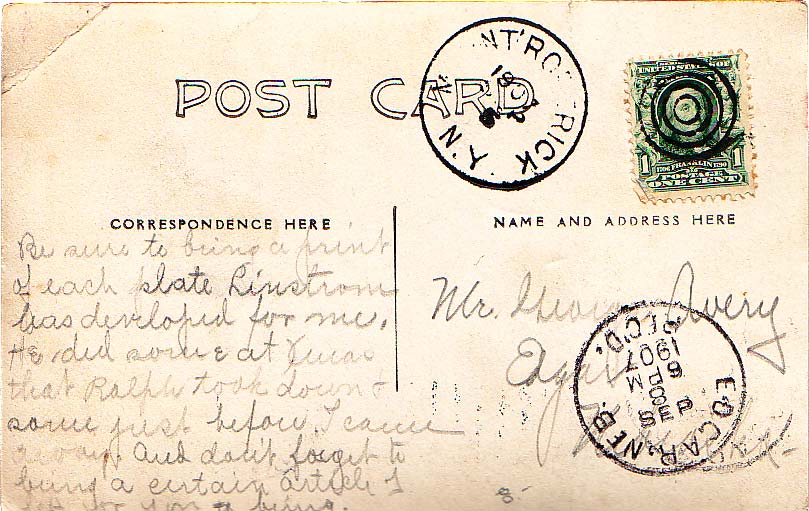 POST CARD
MOUNT RODERICK
N.Y.
UNITED STATES OF
1706 FRANKLIN 1790
1 1
POSTAGE
ONE CENT
CORRESPONDENCE HERE
NAME AND ADDRESS HERE
Be sure to bring a print
of each plate Linstrom
has developed for me.
He did some at Xmas
that Ralph took down &
some just before I came
away. And don't forget to
bring a certain article I
for you to bring.
Mr. George Avery
Edgar
EDGAR, NEB.
REC'D.
SEP
8 PM
1907
8